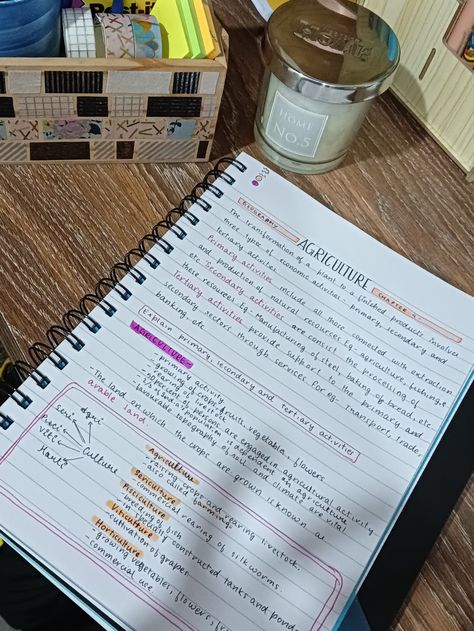 Post-it
HOME
No.5
GEOGRAPHY
CHAPTER
AGRICULTURE
The transformation of a plant to a finished products involves
three types of economic activities - primary, secondary and
tertiary activities.
Primary activities include all those connected with extraction
and production of natural resources. Eg. agriculture, fishing,
etc. Secondary activities are concerned the processing of
these resources. Eg. Manufacturing of steel, baking of bread, etc.
Tertiary activities provide support to the primary and
secondary sectors through services for eg - Transport, Trade,
banking, etc.
Explain primary, secondary and tertiary activities
AGRICULTURE
- primary activity
- growing of crops, fruits, vegetables, flowers
- rearing of livestock
- population are engaged in agricultural activity
- favourable topography of soil and climate are vital
- The land on which the crops are grown is known as
arable land.
Agri
Seri
Pisci
Viti
Horti
Culture
Agriculture
- raising crops and rearing livestock.
- also called farming.
Sericulture
- commercial rearing of silkworms.
Pisciculture
- breeding of fish
in specially constructed tanks and ponds
Viticulture
- cultivation of grapes
Horticulture
- growing vegetables, flowers,
commercial use